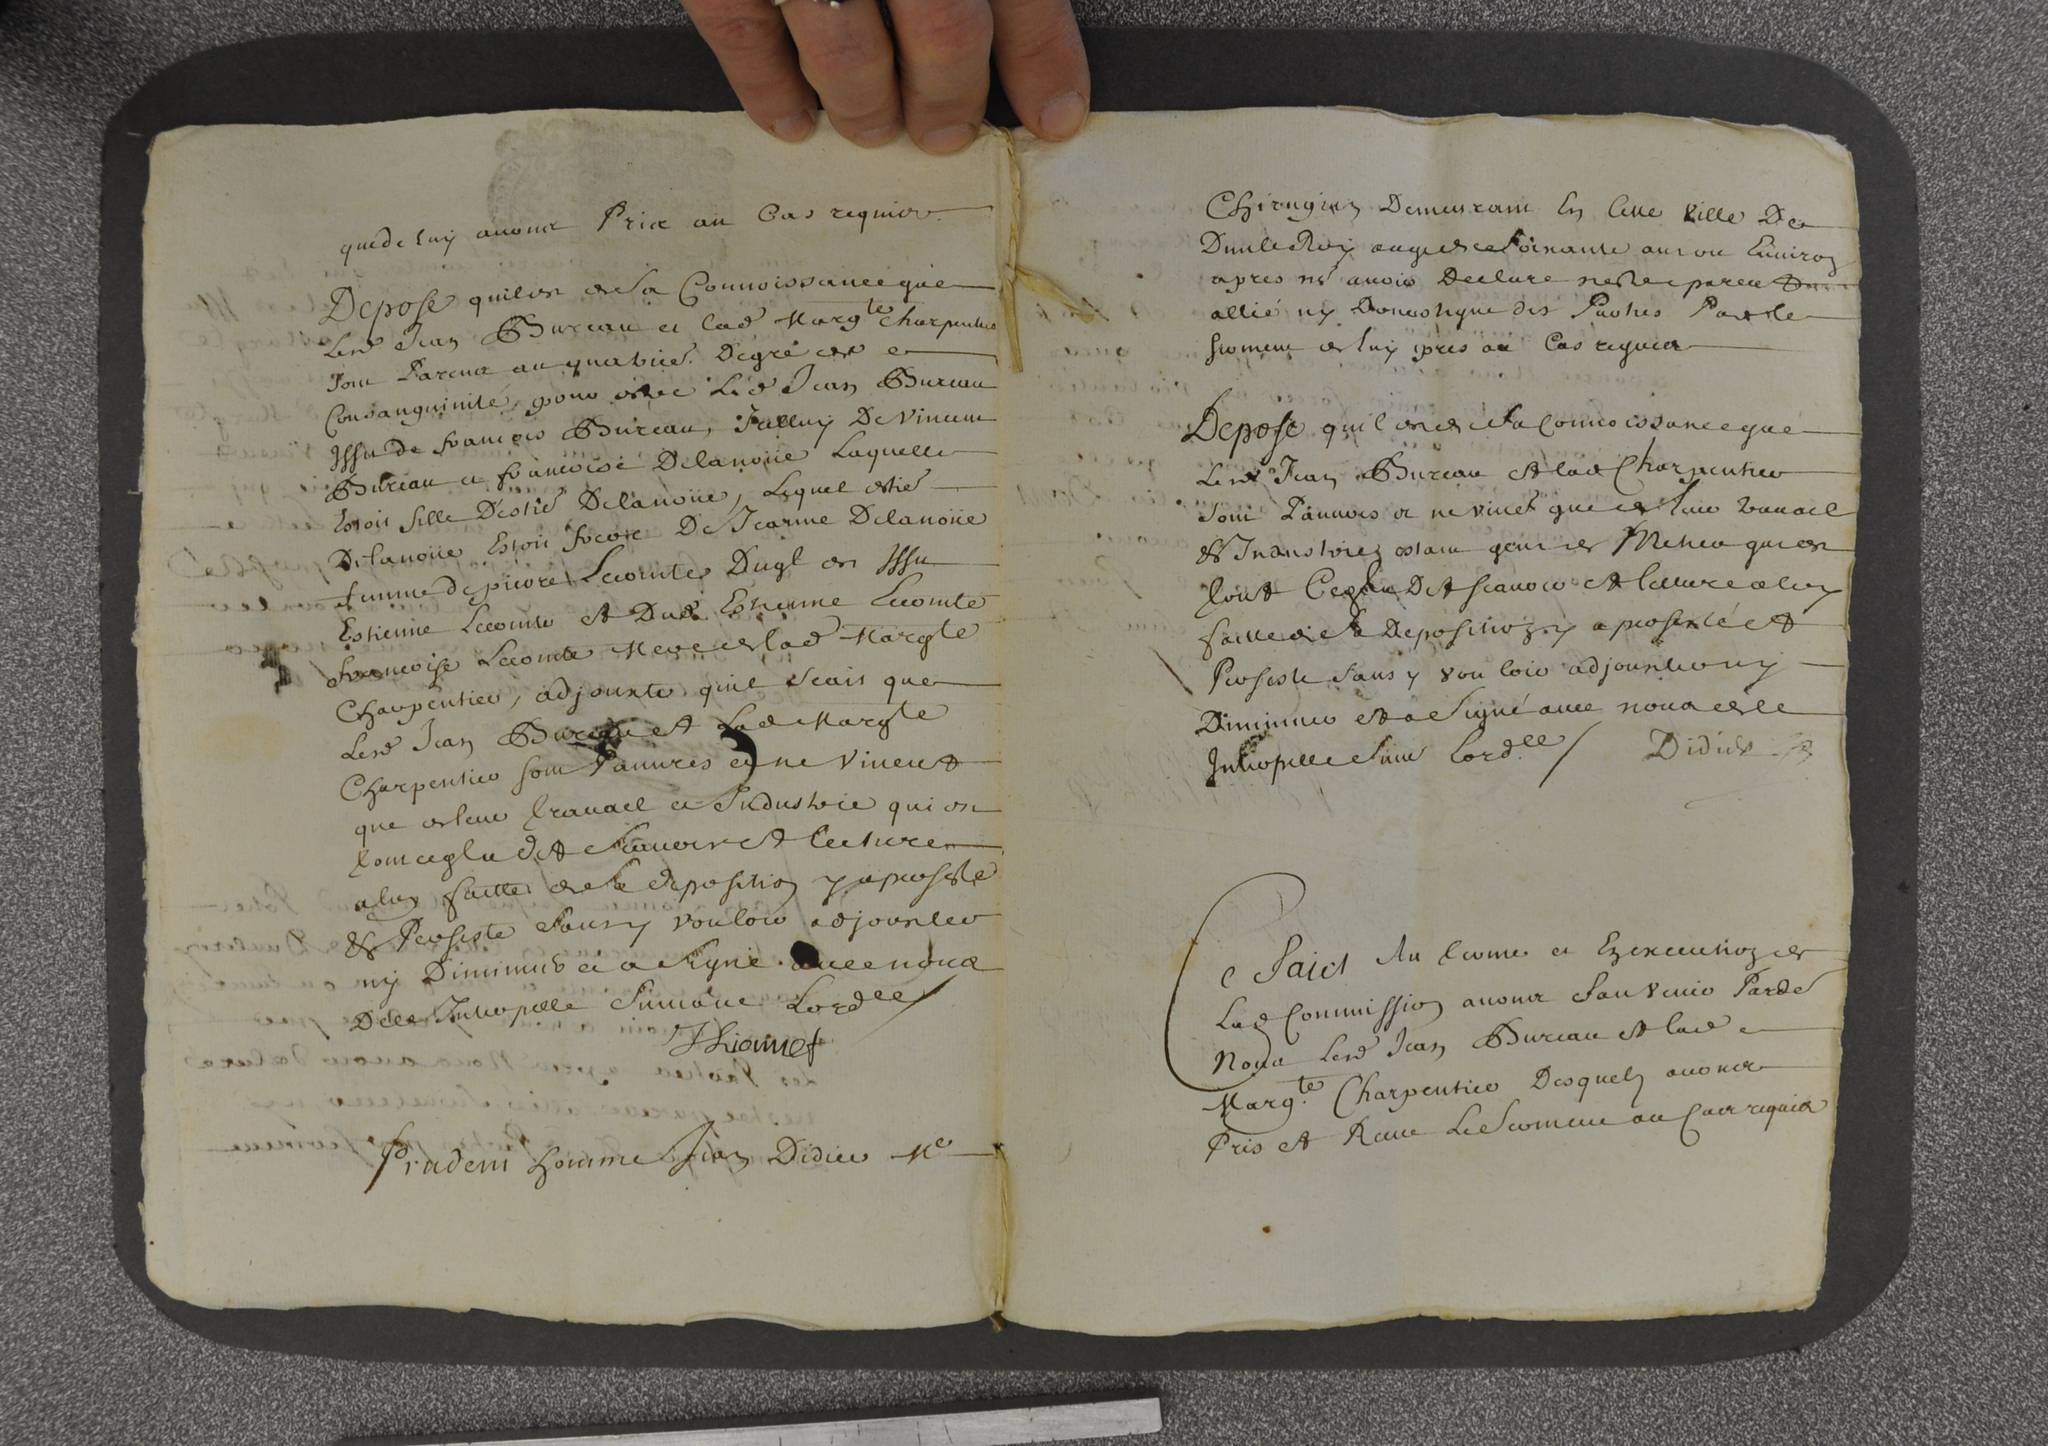 que de luy avons Pris au Cas requis
Depose quil est de sa Connoissance que
Lesd Jean Bureau et lad Margte Charpentier
sont Parens au quatries Degré de
Consanguinité, pour estre Led Jean Bureau
Issu de francois Bureau, Icelluy De Vincent
Bureau et francoise Delanoüe Laquelle
Estoit fille D'estie Delanoüe, Lequel estie
Delanoüe Estoit frere De Jeanne Delanoüe
femme de pierre Lecomte Duql est Issu
Estienne Lecomte et Dud Estienne Lecomte
francoise Lecomte Mere de lad Margte
Charpentier, adjouxte quil scait que
Lesd Jean Bureau et Lad Margte
Charpentier sont Pauvres et ne vivent
que de leur travail et Industrie qui est
tout ce qlu dit scavoir et lecture
a luy faitte de sa deposition y a persisté
& Persiste sans y vouloir adjouster
ny Diminuer et a signé avec nous
De ce Interpelle suivant Lordce
Thionnet
Prudent homme Jean Didier Me
Chirugien Demeurant En Cette Ville De
Dunle Roy aagé de soixante ans ou Environ
apres nous avoir Declaré nestre parent
allié ny Domestique des Parties Par le
serment de luy pris au Cas requis
Depose quil est de sa Connoissance que
Lesd Jean Bureau et lad Charpentier
sont Pauvres et ne vivet que de leur travail
& Industrie estant gens de Metier qui est
tout Ce qlu Dit scavoir et lecture a luy
faitte de sa Deposition y a persisté et
Persiste sans y vouloir adjouster ny
Diminuer et a Signé avec nous de ce
Interpelle suivt Lordce / Didier
Ce Faict Au terme et En execution de
Lad Commission avons fait venir Pardt
Nous Lesd Jean Bureau et lad
Margte Charpentier Desquels avons
Pris et Receu Le Serment au Cas requis